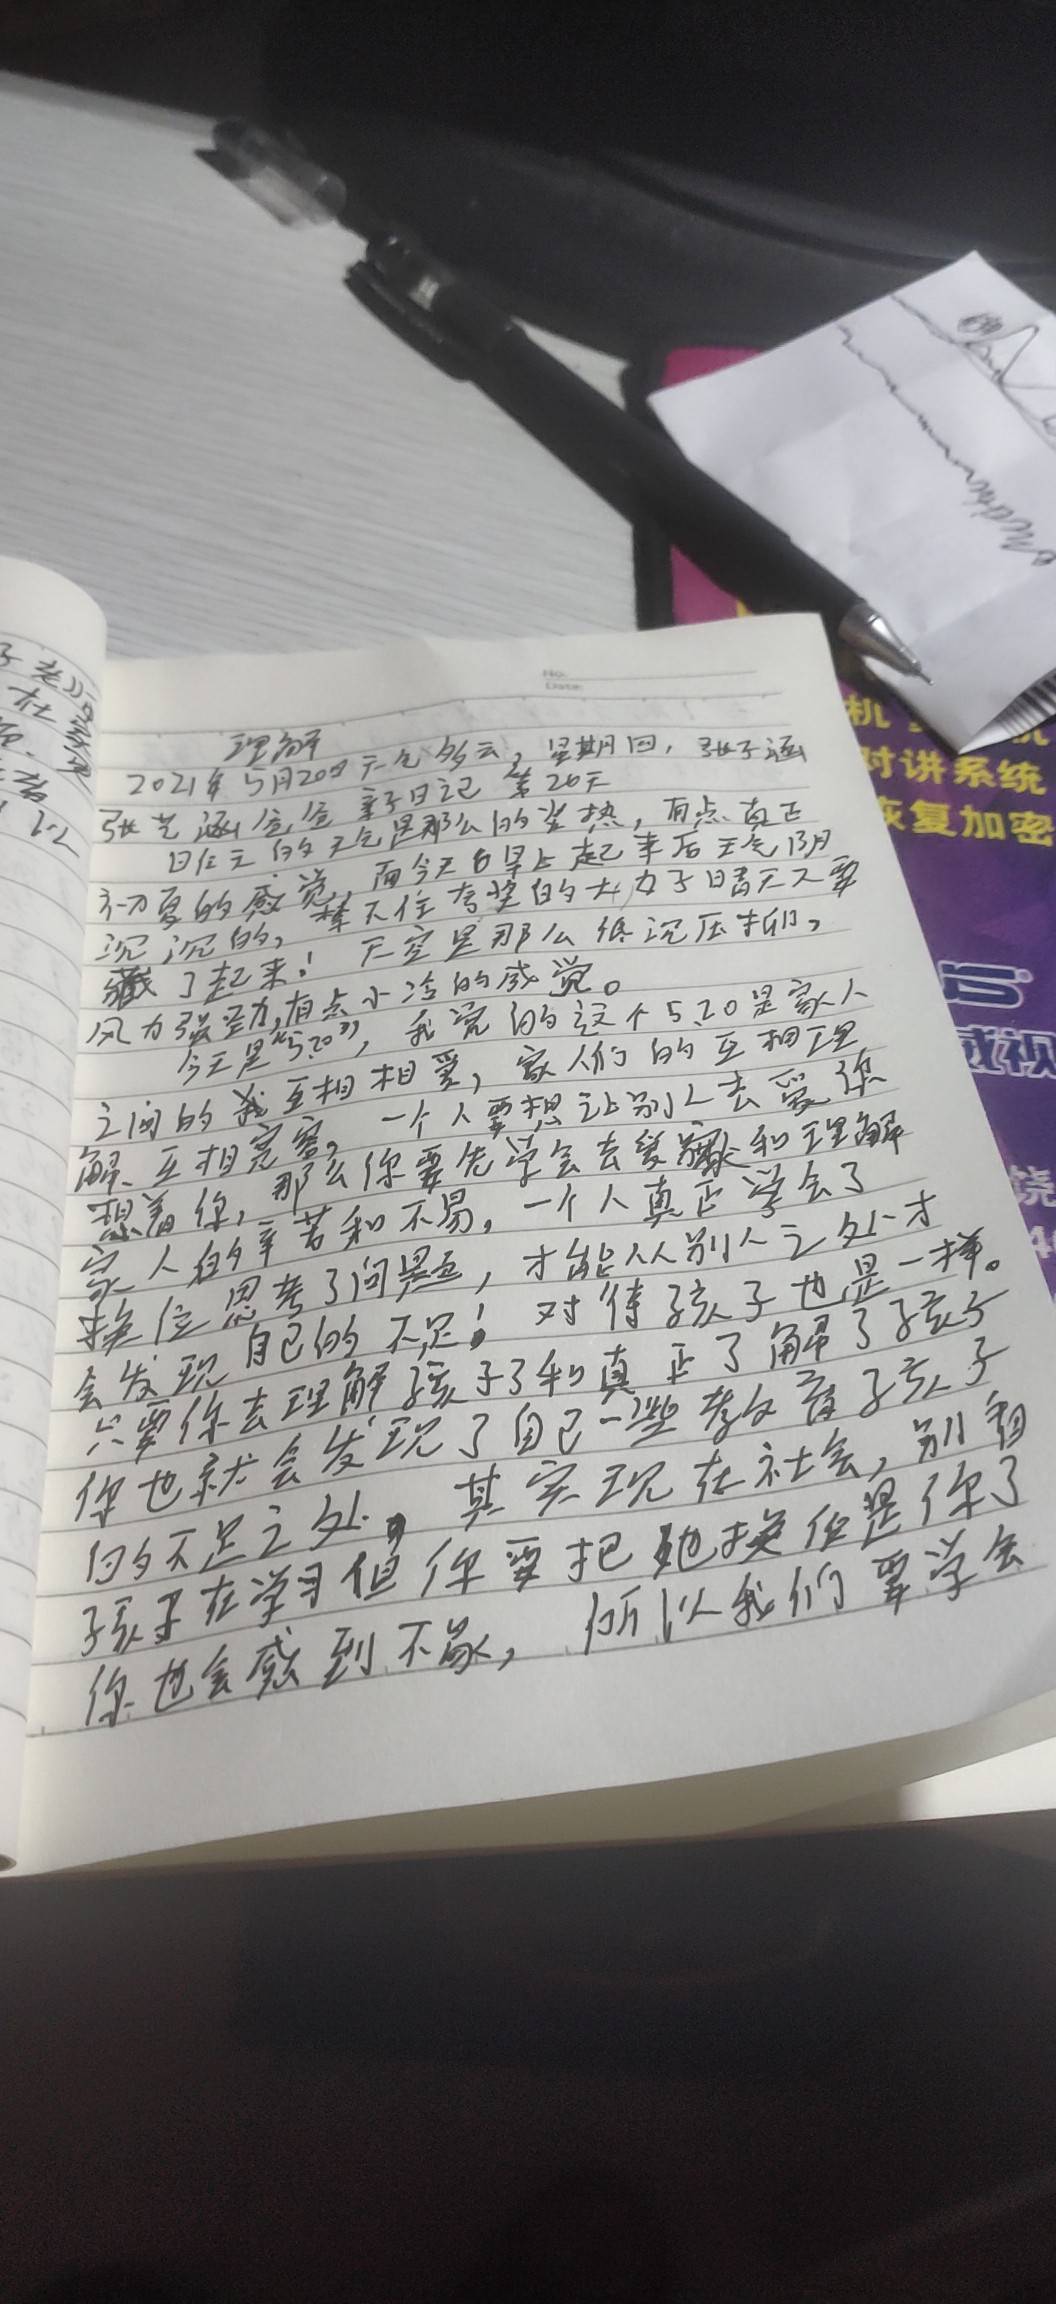 No.
Date:
理解
2021年5月20日天气多云,星期四,张子涵
张艺涵爸爸亲子日记 第26天
日任天的天气是那么的炎热,有点真正
初夏的感觉,而今天白早上起来后天气阴
沉沉的,禁不住夸奖的大力子晴天又要
藏了起来!天空是那么低沉压抑,
风力强劲,有点小冷的感觉。
今天是“5.20”,我觉的这个5.20是家人
之间的我互相相爱,家人们的互相理
解、互相宽容。一个人要想让别人去爱你
想着你,那么你要先学会去爱家人和理解
家人的辛苦和不易,一个人真正学会了
换位思考了问题,才能从别人之处才
会发现自己的不足!对待孩子也是一样。
只要你去理解孩子了和真正了解了孩子
你也就会发现了自己一些教育孩子
的不足之处。其实现在社会,别看
孩子在学习但你要把她换位是你了
你也会感到不易,所以我们要学会
机
对讲系统
恢复加密
威视